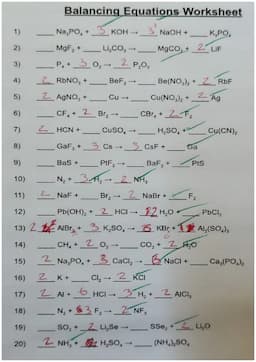 Balancing Equations Worksheet
1) ___ Na₃PO₄ + 3 KOH → 3 NaOH + ___ K₃PO₄
2) ___ MgF₂ + ___ Li₂CO₃ → ___ MgCO₃ + 2 LiF
3) ___ P₄ + 3 O₂ → 2 P₂O₃
4) 2 RbNO₃ + ___ BeF₂ → ___ Be(NO₃)₂ + 2 RbF
5) 2 AgNO₃ + ___ Cu → ___ Cu(NO₃)₂ + 2 Ag
6) ___ CF₄ + 2 Br₂ → ___ CBr₄ + 2 F₂
7) 2 HCN + ___ CuSO₄ → ___ H₂SO₄ + ___ Cu(CN)₂
8) ___ GaF₃ + 3 Cs → 3 CsF + ___ Ga
9) ___ BaS + ___ PtF₂ → ___ BaF₂ + ___ PtS
10) ___ N₂ + 3 H₂ → 2 NH₃
11) 2 NaF + ___ Br₂ → 2 NaBr + ___ F₂
12) ___ Pb(OH)₂ + 2 HCl → 2 H₂O + ___ PbCl₂
13) 2 AlBr₃ + 3 K₂SO₄ → KBr + Al₂(SO₄)₃
14) ___ CH₄ + 2 O₂ → ___ CO₂ + 2 H₂O
15) 2 Na₃PO₄ + 3 CaCl₂ → NaCl + ___ Ca₃(PO₄)₂
16) 2 K + ___ Cl₂ → 2 KCl
17) 2 Al + 6 HCl → 3 H₂ + 2 AlCl₃
18) ___ N₂ + 3 F₂ → 2 NF₃
19) ___ SO₂ + 2 Li₂Se → ___ SSe₂ + 2 Li₂O
20) 2 NH₃ + H₂SO₄ → ___ (NH₄)₂SO₄